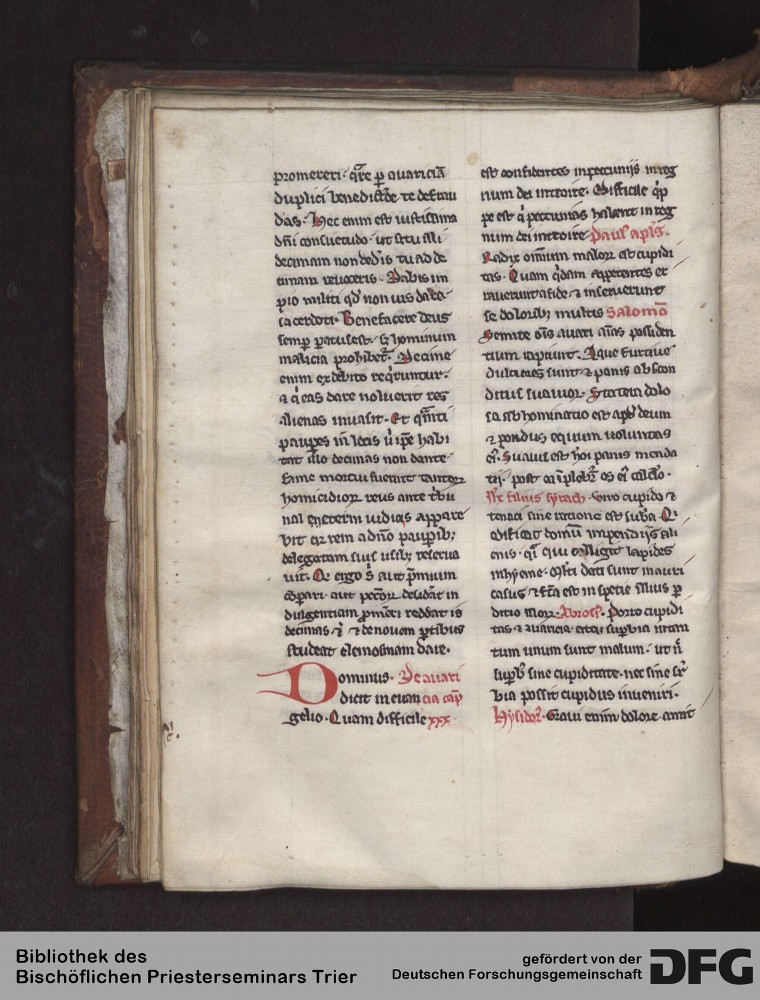 promereri. q̄re ꝑ auariciā
duplici benedictōe te defrau
das. Hec enim est iustissima
dn̄i consuetudo. ut si tu illi
decimam non ded̓is tu ad de
cimam reuoceris. Dabis im
pio militi qd̓ non uis dare
sacerdoti. Benefacere deus
semꝑ paratus est. sꝫ hominum
malicia prohibet᷑. Decime
enim ex debito req̓runtur.
⁊ q̓ eas dare noluerit res
alienas inuasit. Et q̄nti
pauꝑes in locis u̓ ip̄e habi
tat illo decimas non dante
fame mortui fuerint tantoꝝ
homicidioꝝ reus ante t̓bu
nal eterni iudicis appare
bit q̓ rem a dn̄o pauꝑibꝫ
delegatam suis usibꝫ reserua
uit. Q̓ ergo s̄ aut p̄mium
cōparari. aut pctōꝝ desiderat in
dulgentiam ꝓmereri reddat
decimas ⁊ de nouem ꝑtibus
studeat elemosinam dare.
Dominus. De auari
dicit in euan cia cap̄
gelio. Quam difficile xxx
est confidentes in pecuniis in reg
num dei introire. Difficile q̓p
pe est q̓ peccunias habent in reg
num dei introire Paul᷒ apl̄s.
Radix omnium maloꝝ est cupidi
tas. Quam q̓dam appetentes er
rauerunt a fide ⁊ inseruerunt
se doloribꝫ multis Salomō
Semite om̄s auari aīas possiden
tium rapiunt. Aque furtiue
dulciores sunt ⁊ panis abscon
ditus suauior. Statera dolo
sa abhominatio est apd̓ deum
⁊ pondus equum uoluntas
ei᷒. Suauis est hoī panis menda
cii. post ea īplebit᷑ os ei᷒ calclo.
Ih̄c filius syrach. Viro cupido ⁊
tenaci sine ratione est sub̄a. Q̓
edificat domū impendiis ali
enis. q̄i qui colligit lapides
in hyeme. Ml̓ti dati sunt in auri
casus ⁊ fc̄a est in specie illius ꝑ
ditio illoꝝ. Ambros᷒. Porro cupidi
tas ⁊ auaricia atqꝫ suꝑbia uirtan
tum unum sunt malum. ut n̄
suꝑb᷒ sine cupiditate. nec sine suꝑ
bia possit cupidus inueniri.
Hysidor᷒. Graui enim dolore amit
Bibliothek des
Bischöflichen Priesterseminars Trier
gefördert von der
Deutschen Forschungsgemeinschaft
DFG